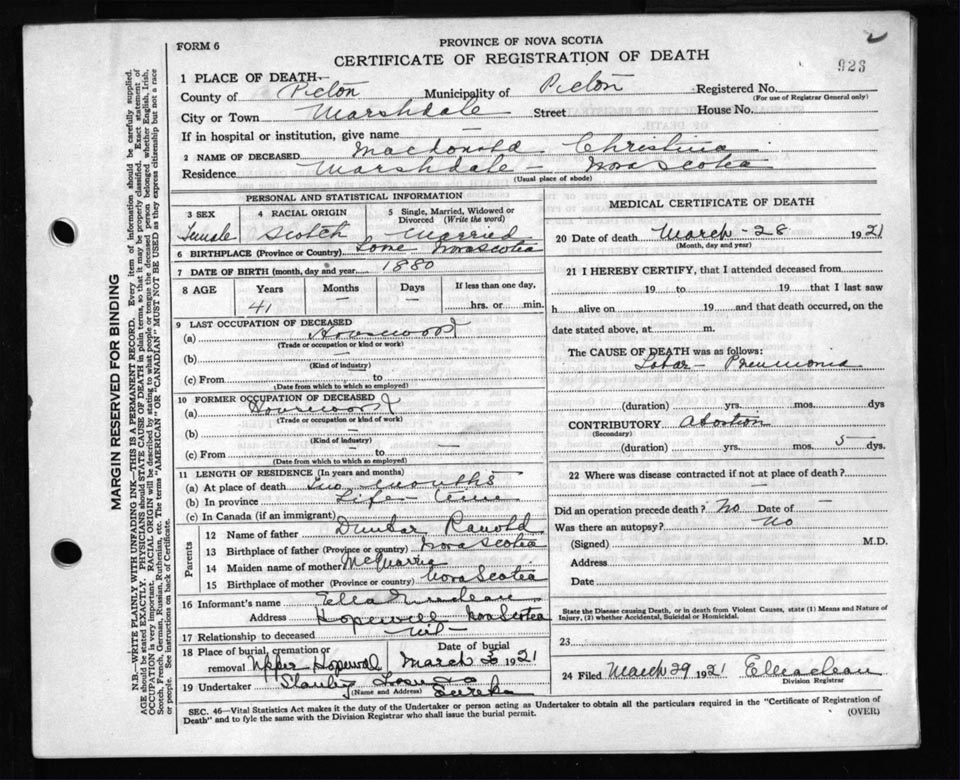 FORM 6
PROVINCE OF NOVA SCOTIA
CERTIFICATE OF REGISTRATION OF DEATH
923
1 PLACE OF DEATH—
County of Pictou Municipality of Pictou Registered No.
(For use of Registrar General only)
City or Town Marshdale Street House No.
If in hospital or institution, give name —
2 NAME OF DECEASED MacDonald Christina
Residence Marshdale — Nova Scotia
(Usual place of abode)
PERSONAL AND STATISTICAL INFORMATION
3 SEX 4 RACIAL ORIGIN 5 Single, Married, Widowed or Divorced (Write the word)
Female Scotch Married
6 BIRTHPLACE (Province or Country) Lorne Nova Scotia
7 DATE OF BIRTH (month, day and year) 1880
8 AGE Years Months Days If less than one day,
41 — — hrs. or min.
9 LAST OCCUPATION OF DECEASED
(a) Housework
(Trade or occupation or kind of work)
(b) —
(Kind of industry)
(c) From — to —
(Date from which to which so employed)
10 FORMER OCCUPATION OF DECEASED
(a) Housework
(Trade or occupation or kind of work)
(b) —
(Kind of industry)
(c) From — to —
(Date from which to which so employed)
11 LENGTH OF RESIDENCE (In years and months)
(a) At place of death Two months
(b) In province Life time
(c) In Canada (if an immigrant)
Parents
12 Name of father Dunbar Ranold
13 Birthplace of father (Province or country) Nova Scotia
14 Maiden name of mother McQuarrie
15 Birthplace of mother (Province or country) Nova Scotia
16 Informant's name Ella
Address Hopewell Nova Scotia
17 Relationship to deceased
18 Place of burial, cremation or removal Upper Hopewell
Date of burial March 30 1921
19 Undertaker Eureka
(Name and Address)
MEDICAL CERTIFICATE OF DEATH
20 Date of death March - 28 1921
(Month, day and year)
21 I HEREBY CERTIFY, that I attended deceased from
19 to 19 that I last saw
h alive on 19 and that death occurred, on the
date stated above, at m.
The CAUSE OF DEATH was as follows:
Lobar - Pneumonia
(duration) yrs. mos. dys
CONTRIBUTORY Abortion
(Secondary)
(duration) yrs. mos. 5 dys.
22 Where was disease contracted if not at place of death?
—
Did an operation precede death? No Date of —
Was there an autopsy? No
(Signed) M.D.
Address
Date
State the Disease causing Death, or in death from Violent Causes, state (1) Means and Nature of
Injury, (2) whether Accidental, Suicidal or Homicidal.
23
24 Filed March 29 1921 E Maclean
Division Registrar
SEC. 46—Vital Statistics Act makes it the duty of the Undertaker or person acting as Undertaker to obtain all the particulars required in the "Certificate of Registration of
Death" and to fyle the same with the Division Registrar who shall issue the burial permit.
(OVER)
MARGIN RESERVED FOR BINDING
N.B.—WRITE PLAINLY WITH UNFADING INK—THIS IS A PERMANENT RECORD. Every item of information should be carefully supplied.
AGE should be stated EXACTLY. PHYSICIANS should STATE CAUSE OF DEATH in plain terms, so that it may be properly classified. Exact statement of
OCCUPATION is very important. RACIAL ORIGIN will be described by stating to what people or tongue the deceased person belonged whether English, Irish,
Scotch, French, German, Russian, Ruthenian, etc. The terms "AMERICAN" OR "CANADIAN" MUST NOT BE USED as they express citizenship but not a race
or people. See instructions on back of Certificate.